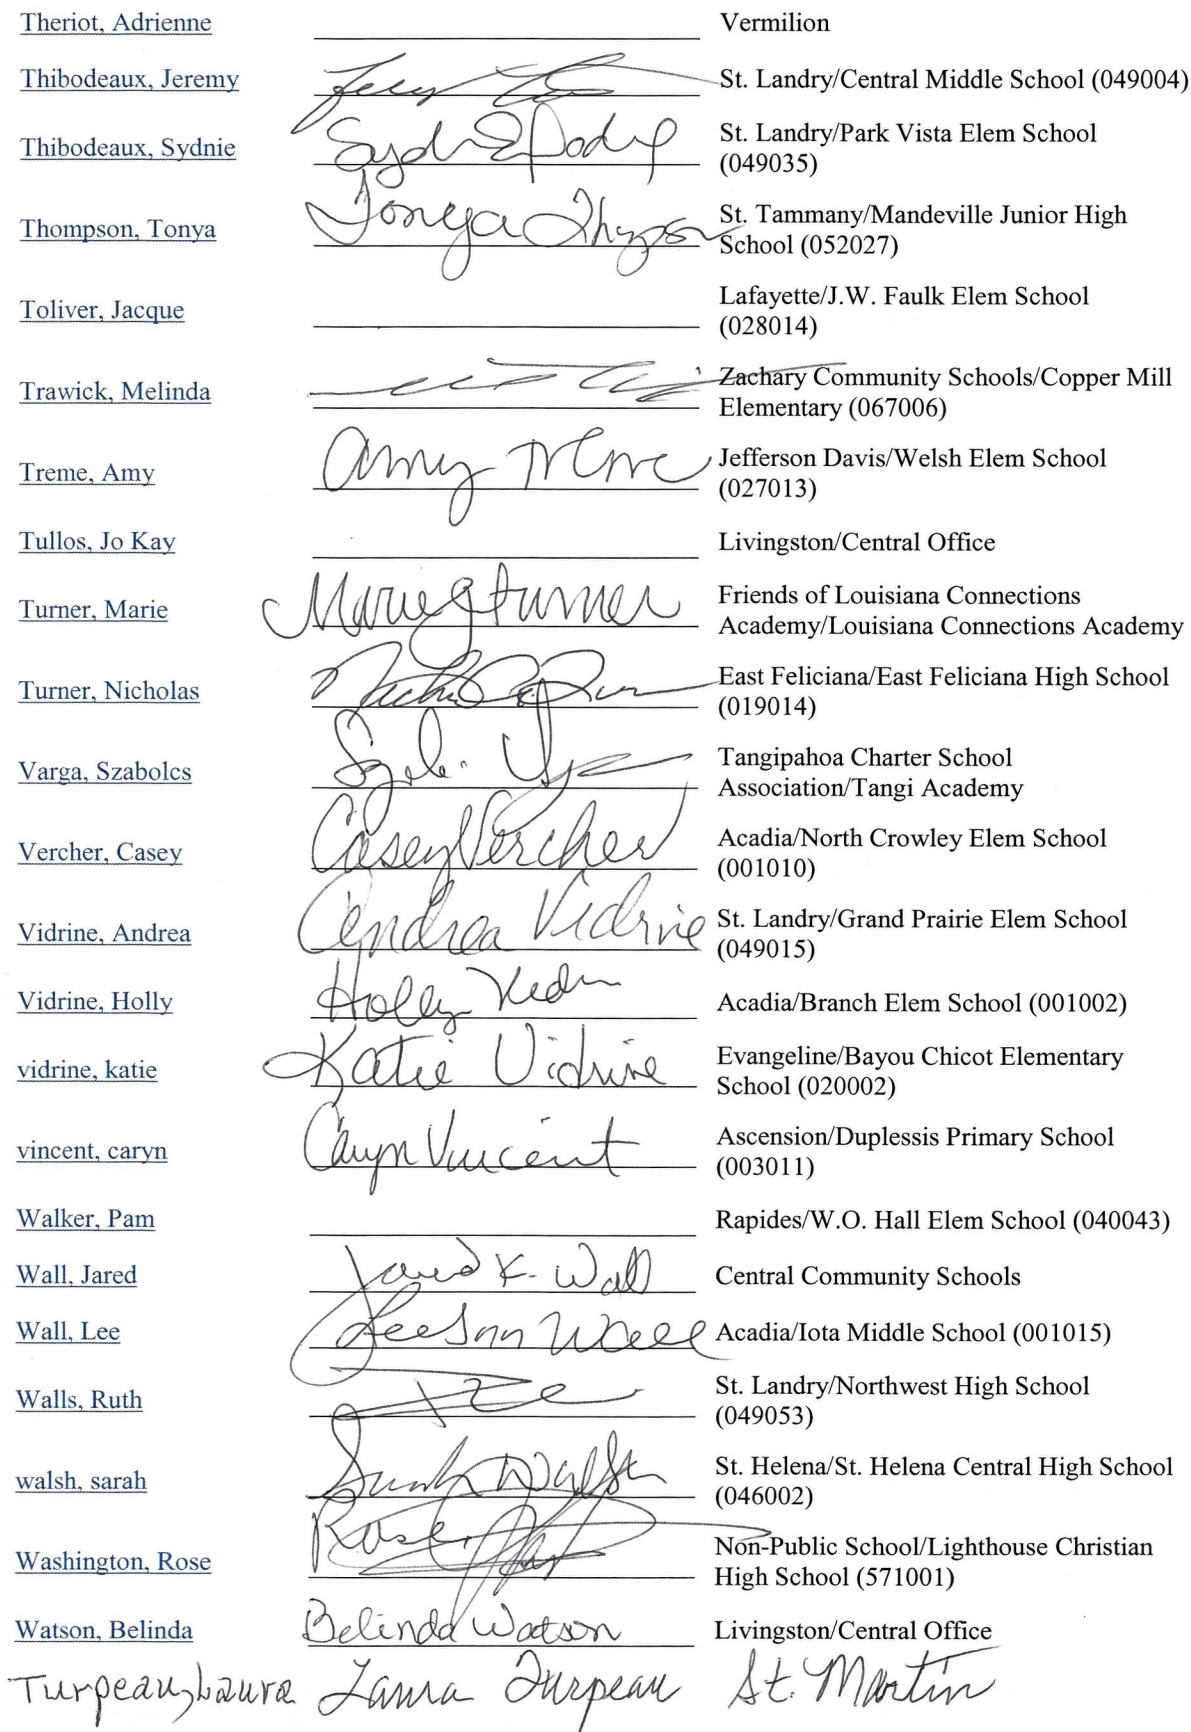 Theriot, Adrienne Vermilion
Thibodeaux, Jeremy St. Landry/Central Middle School (049004)
Thibodeaux, Sydnie St. Landry/Park Vista Elem School
(049035)
Thompson, Tonya Tonya Thompson St. Tammany/Mandeville Junior High
School (052027)
Toliver, Jacque Lafayette/J.W. Faulk Elem School
(028014)
Trawick, Melinda Zachary Community Schools/Copper Mill
Elementary (067006)
Treme, Amy Amy Treme Jefferson Davis/Welsh Elem School
(027013)
Tullos, Jo Kay Livingston/Central Office
Turner, Marie Marie G Turner Friends of Louisiana Connections
Academy/Louisiana Connections Academy
Turner, Nicholas East Feliciana/East Feliciana High School
(019014)
Varga, Szabolcs Tangipahoa Charter School
Association/Tangi Academy
Vercher, Casey Casey Vercher Acadia/North Crowley Elem School
(001010)
Vidrine, Andrea Andrea Vidrine St. Landry/Grand Prairie Elem School
(049015)
Vidrine, Holly Holly Vidrine Acadia/Branch Elem School (001002)
vidrine, katie Katie Vidrine Evangeline/Bayou Chicot Elementary
School (020002)
vincent, caryn Caryn Vincent Ascension/Duplessis Primary School
(003011)
Walker, Pam Rapides/W.O. Hall Elem School (040043)
Wall, Jared Jared K. Wall Central Community Schools
Wall, Lee LeeAnn Wall Acadia/Iota Middle School (001015)
Walls, Ruth St. Landry/Northwest High School
(049053)
walsh, sarah Sarah Walsh St. Helena/St. Helena Central High School
(046002)
Washington, Rose Rose Non-Public School/Lighthouse Christian
High School (571001)
Watson, Belinda Belinda Watson Livingston/Central Office
Turpeau, Laura Laura Turpeau St. Martin